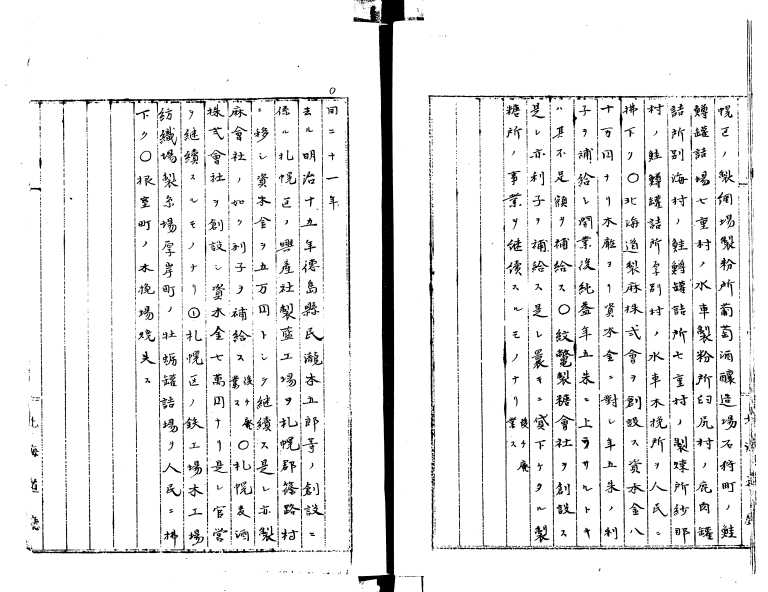 幌区ノ製網場製粉所葡萄酒醸造場石狩町ノ鮭
鱒罐詰場七重村ノ水車製粉所臼尻村ノ鹿肉罐
詰所別海村ノ鮭鱒罐詰所七重村ノ製煉所紗那
村ノ鮭鱒罐詰所厚別村ノ水車木挽所ヲ人民ニ
拂下ク〇北海道製麻株式會ヲ創設ス資本金八
十万円ヲリ本廳ヨリ資本金ニ對シ年五朱ノ利
子ヲ補給シ開業後純益年五朱ニ上ラサルトキ
ハ其不足額ヲ補給ス〇紋鼈製糖會社ヲ創設ス
是レ亦利子ヲ補給ス是レ曩キニ貸下ケタル製
糖所ノ事業ヲ継續スルモノナリ後チ廃業ス
同二十一年
去ル明治十五年徳島縣民瀧本五郎等ノ創設ニ
係ル札幌区ノ興産社製藍工場ヲ札幌郡篠路村
ニ移シ資本金ヲ五万円トシテ継續ス是レ亦製
麻會社ノ如ク利子ヲ補給ス後チ廃業ス〇札幌麦酒
株式會社ヲ創設シ資本金七萬円ナリ是レ官営
ヲ継續スルモノナリ〇札幌区ノ鉄工場木工場
紡織場製糸場厚岸町ノ牡蛎罐詰場ヲ人民ニ拂
下ク〇根室町ノ木挽場焼失ス